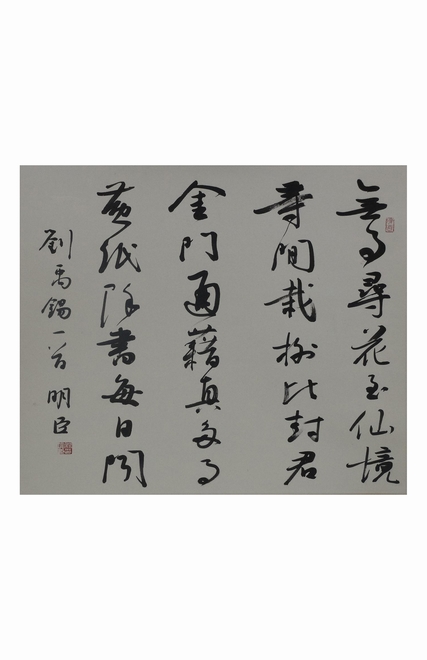 無事尋花至仙境
等閒栽樹比封君
金門通藉真多事
黃紙除書每日聞
劉禹錫一首 明臣